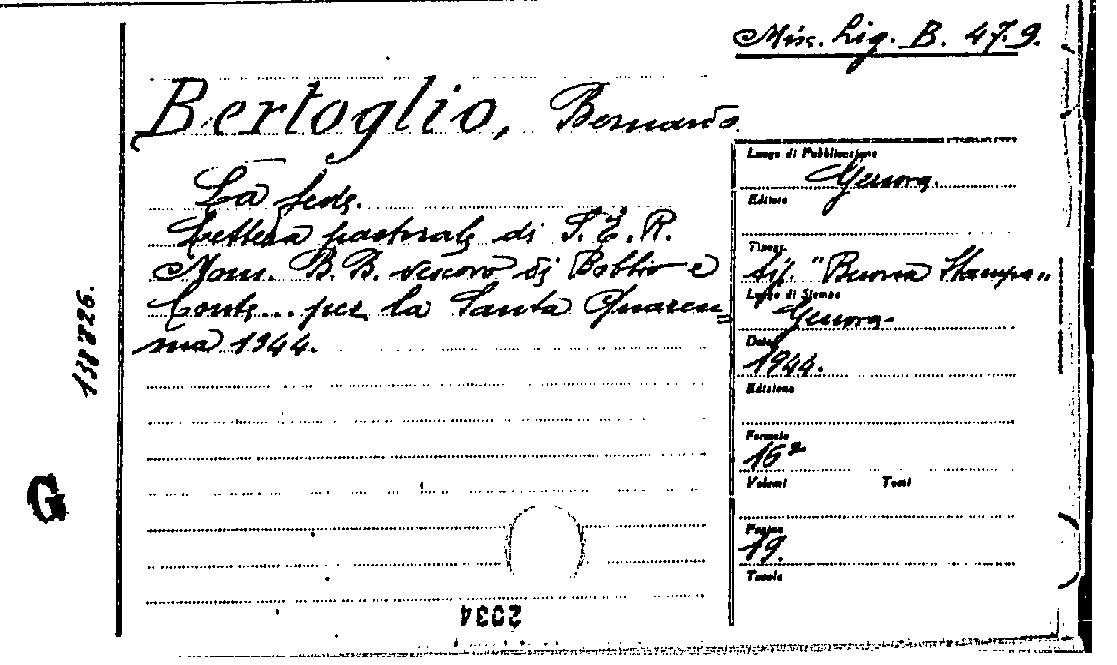 Misc. Lig. B. 47.9.
Bertoglio, Bernardo
La fede.
Lettera pastorale di S. E. R.
Mons. B. B. vescovo di Bobbio e
Conte... per la Santa Quares=
ma 1944.
138826.
G
2034
Luogo di Pubblicazione
Genova.
Editore
Tipogr.
Tip. "Buona Stampa"
Luogo di Stampa
Genova-
Data
1944.
Edizione
Formato
16°
Volumi Tomi
Pagine
19.
Tavole